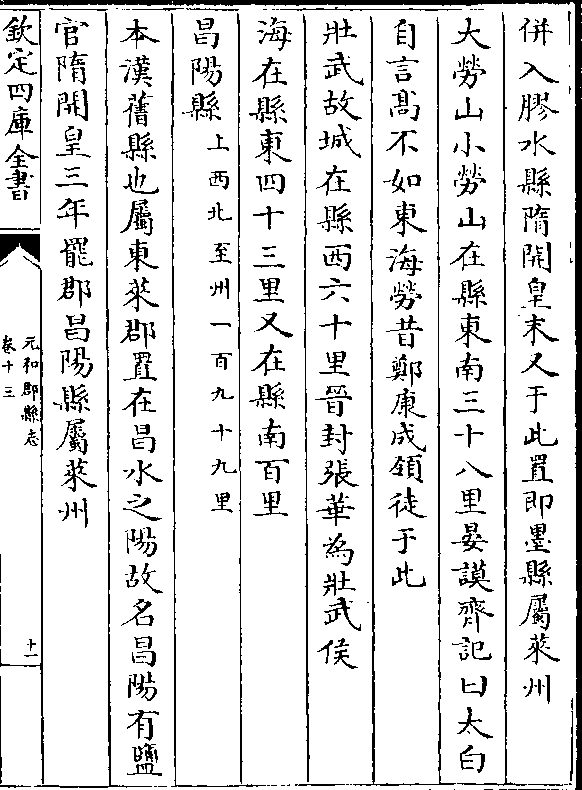 併入膠水縣隋開皇末又于此置即墨縣屬萊州
大勞山小勞山在縣東南三十八里晏謨齊記曰太白
自言髙不如東海勞昔鄭康成領徒于此
壯武故城在縣西六十里晉封張華為壯武侯
海在縣東四十三里又在縣南百里
昌陽縣上西北至州一百九十九里
本漢舊縣也屬東萊郡置在昌水之陽故名昌陽有鹽
官隋開皇三年罷郡昌陽縣屬萊州
欽定四庫全書
元和郡縣志
卷十三
十一